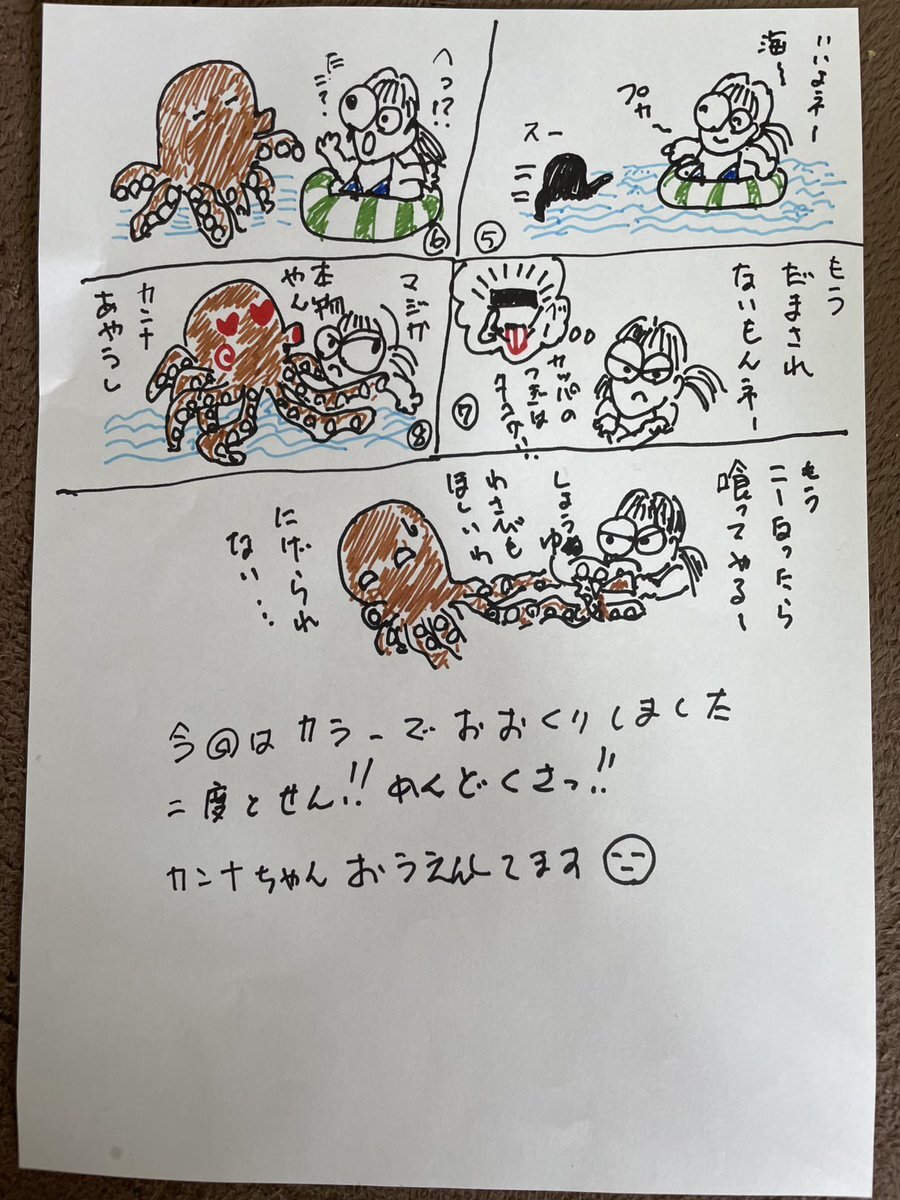 いいよネー
海〜
プカ〜
スー
⑤
へっ!?
たこ?
⑥
もう
だまされ
ないもんネー
カッパの
つぎは
タコか!!
⑦
マジか
本物
やん
カンナ
あやうし
⑧
もう
こーなったら
喰ってやる〜
しょうゆ
わさびも
ほしいわ
にげられ
ない…
今回はカラーでおおくりしました
二度とせん!! めんどくさっ!!
カンナちゃん おうえんしてます